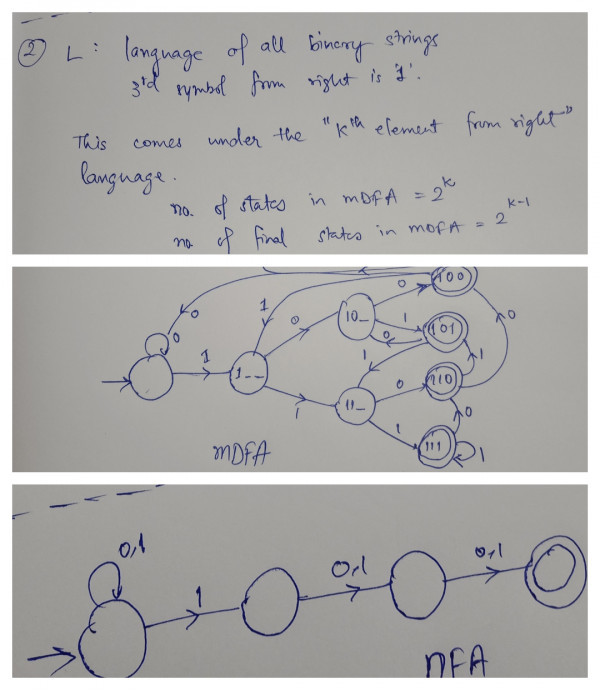 2 L: language of all binary strings
3rd symbol from right is '1'.
This comes under the "Kth element from right"
language.
no. of states in mDFA = 2^K
no. of final states in mDFA = 2^K-1
0 100
0 1 0 10_ 1 101 0
0 1 1__ 0 1 1
1 11_ 0 110
1 0
mDFA 111 1
0,1 1 0,1 0,1
NFA